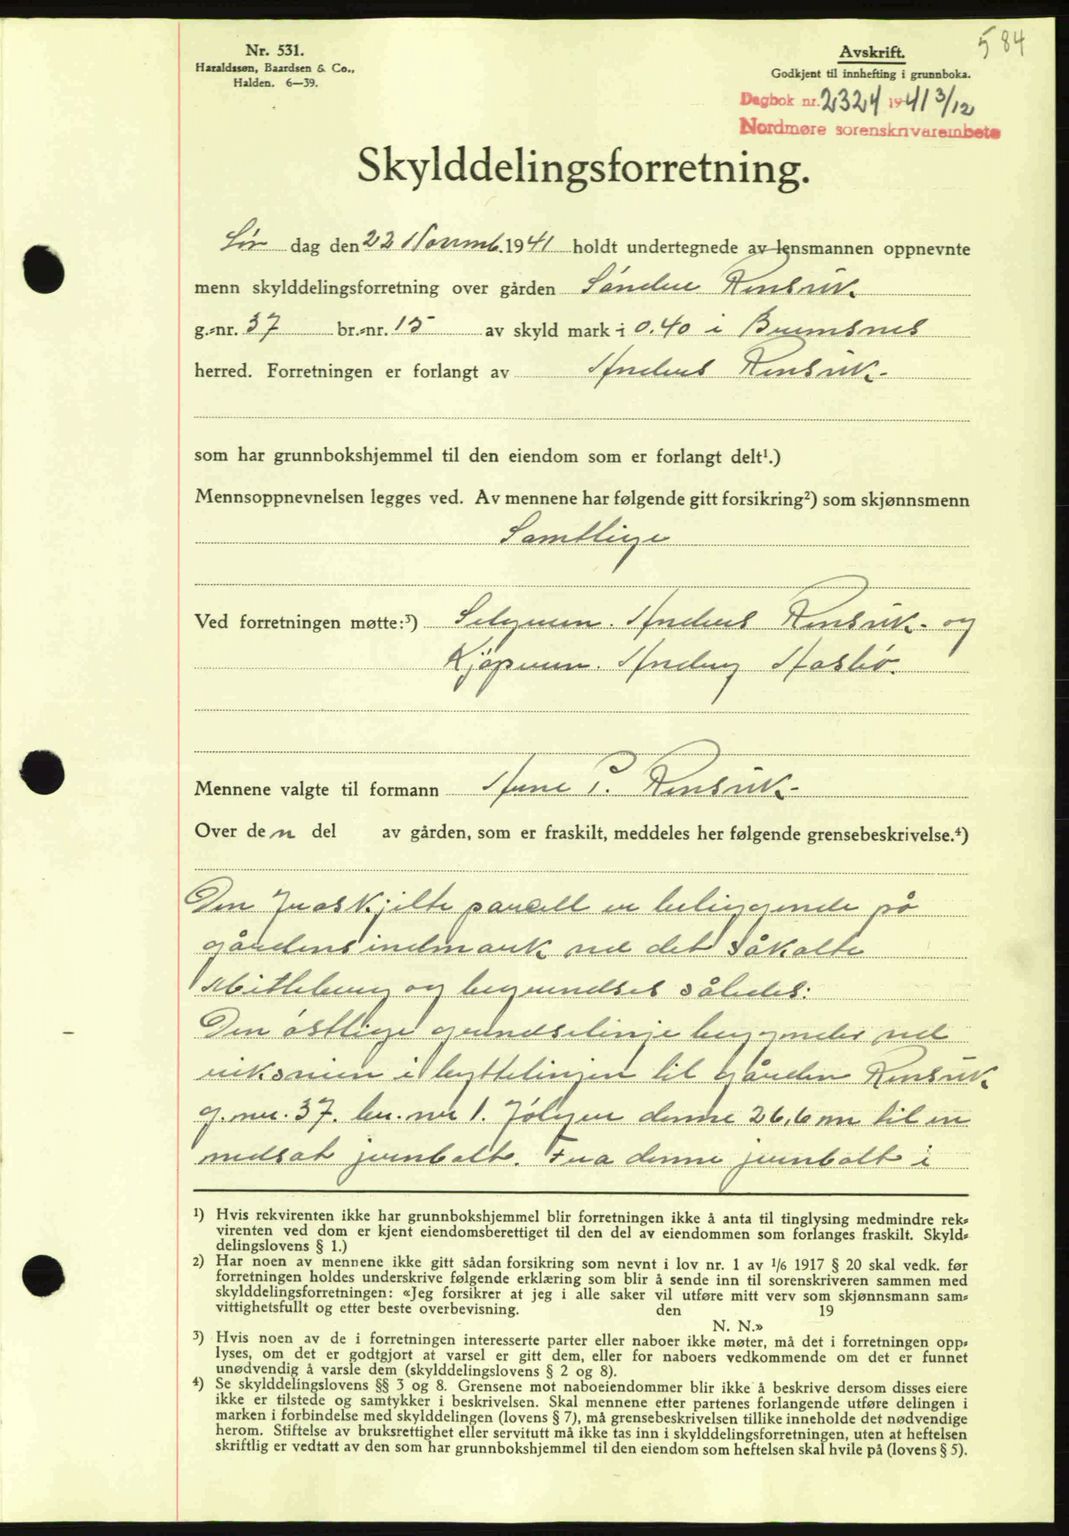 584
Nr. 531.
Haraldssøn, Baardsen & Co.,
Halden. 6—39.
Avskrift.
Godkjent til innhefting i grunnboka.
Dagbok nr. 2324 1941 3/12
Nordmøre sorenskriverembete
Skylddelingsforretning.
Lør dag den 22 Novemb. 1941 holdt undertegnede av lensmannen oppnevnte
menn skylddelingsforretning over gården Söndre Rensvik
g.-nr. 37 br.-nr. 15 av skyld mark 0.40 i Bremsnes
herred. Forretningen er forlangt av Anders Rensvik-
som har grunnbokshjemmel til den eiendom som er forlangt delt¹.)
Mennsoppnevnelsen legges ved. Av mennene har følgende gitt forsikring²) som skjønnsmenn
Samtlige
Ved forretningen møtte:³) Selgeren. Anders Rensvik- og
Kjøperen. Asbø.
Mennene valgte til formann Arne P. Rensvik-
Over den del av gården, som er fraskilt, meddeles her følgende grensebeskrivelse.⁴)
Den fraskjilte parcell er beliggende på
gårdens indmark ved det såkalte
og begrendses således:
Den östlige grendselinje begynder ved
veikanten i byttelinjen til gården Rensvik
g.nr. 37. br. nr 1. følger denne 26,6 m til en
nedsat jernbolt. Fra denne jernbolt i
¹) Hvis rekvirenten ikke har grunnbokshjemmel blir forretningen ikke å anta til tinglysing medmindre rek-
virenten ved dom er kjent eiendomsberettiget til den del av eiendommen som forlanges fraskilt. Skyld-
delingslovens § 1.)
²) Har noen av mennene ikke gitt sådan forsikring som nevnt i lov nr. 1 av 1/6 1917 § 20 skal vedk. før
forretningen holdes underskrive følgende erklæring som blir å sende inn til sorenskriveren sammen med
skylddelingsforretningen: «Jeg forsikrer at jeg i alle saker vil utføre mitt verv som skjønnsmann sam-
vittighetsfullt og etter beste overbevisning. den 19
N. N.»
³) Hvis noen av de i forretningen interesserte parter eller naboer ikke møter, må det i forretningen opp-
lyses, om det er godtgjort at varsel er gitt dem, eller for naboers vedkommende om det er funnet
unødvendig å varsle dem (skylddelingslovens § 2 og 8).
⁴) Se skylddelingslovens §§ 3 og 8. Grensene mot naboeiendommer blir ikke å beskrive dersom disses eiere
ikke er tilstede og samtykker i beskrivelsen. Skal mennene etter partenes forlangende utføre delingen i
marken i forbindelse med skylddelingen (lovens § 7), må grensebeskrivelsen tillike inneholde det nødvendige
herom. Stiftelse av bruksrettighet eller servitutt må ikke tas inn i skylddelingsforretningen, uten at heftelsen
skriftlig er vedtatt av den som har grunnbokshjemmel til den eiendom som heftelsen skal hvile på (lovens § 5).